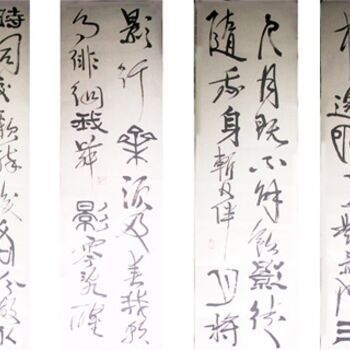 杯邀明月對影成三
人月既不解飲影徒
隨我身暫伴月將
影行樂須及春我歌
月徘徊我舞影零亂醒
時同交歡醉後各分散永